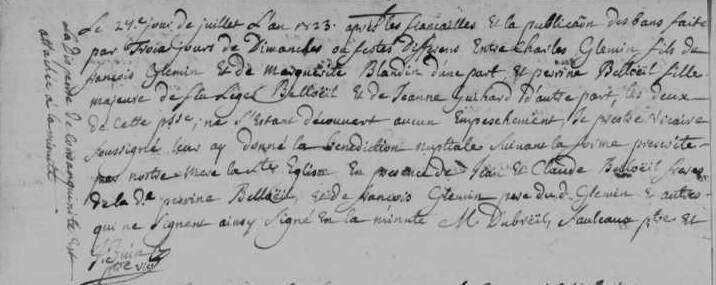 Le 29e jour de juillet L'an 1723 apres les fiancailles Et la publicaon des bans faite
par Trois Jours de Dimanches ou festes Entre Charles Glemin fils de
françois Glemin Et de Marguerite Blandin d'une part, Et perrine Belloëil fille
majeure de Belloëil Et de Jeanne Guihard d'autre part, les deux
de cette psse, ne s'Estant découvert aucun Empeschement, Je prestre Vicaire
soussigné leur ay donné la benediction nuptiale suivant la forme prescritte
par nostre Mere la Ste Eglise. En presence de Jean Et Claude Belloëil freres
de la de perrine Belloëil, Et de françois Glemin pere du d. Glemin Et autres
qui ne signent ainsy signé En la minute M. Dubreüil, ptre Et
ptre Vic
La Dispense de Consanguinité Est
attachée a la minute